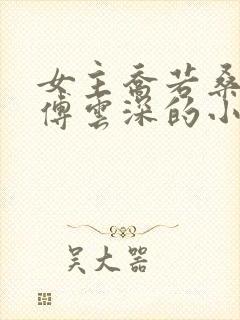 女主喬若桑
傅雲深的小
吴大器